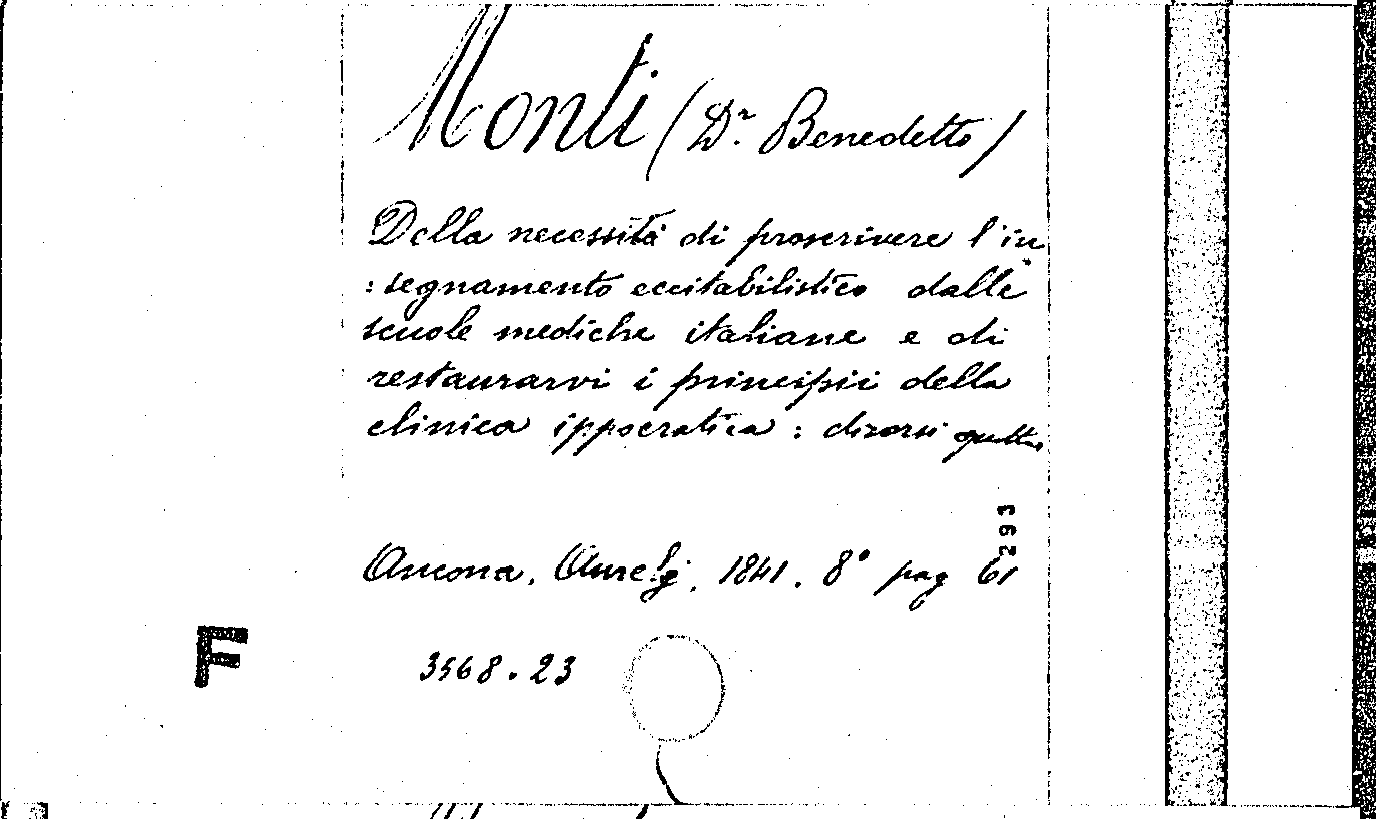 Monti (Dr. Benedetto)
Della necessità di proscrivere l'in
:segnamento eccitabilistico dalle
scuole mediche italiane e di
restaurarvi i principii della
clinica ippocratica : discorsi quattro
293
Ancona, Aurelj, 1841. 8° pag 61
F
3568.23